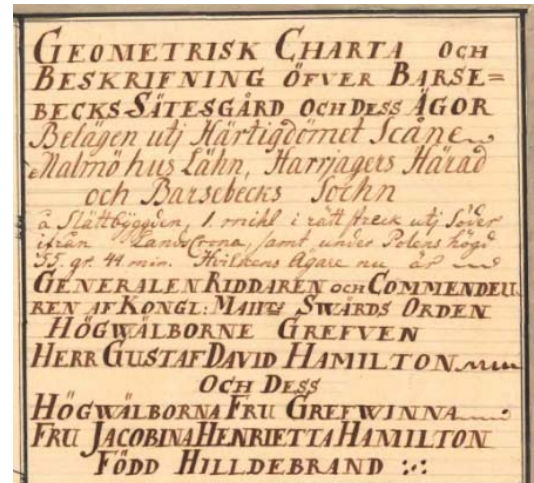 GEOMETRISK CHARTA OCH
BESKRIFNING ÖFVER BARSE=
BECKS SÄTESGÅRD OCH DESS ÄGOR
Belägen utj Härtigdömet Scåne
Malmö hus Lähn, Harrjagers Härad
och Barsebecks Sochn
å Slättbÿggden, 1. mihl i rätt streck utj Söder
ifrån Landscrona, samt under Polens högd
55. gr. 44. min. Hvilkens Ägare nu är
GENERALEN RIDDAREN OCH COMMENDEU
REN AF KONGL: MAIJTS SWÄRDS ORDEN
HÖGWÄLBORNE GREFVEN
HERR GUSTAF DAVID HAMILTON
OCH DESS
HÖGWÄLBORNA FRU GREFWINNA
FRU JACOBINA HENRIETTA HAMILTON
FÖDD HILLDEBRAND :,: